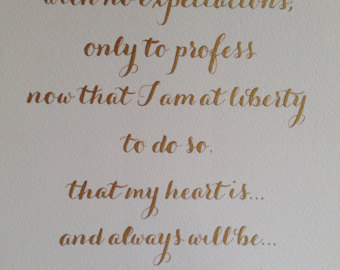 with no expectations,
only to profess
now that I am at liberty
to do so.
that my heart is...
and always will be...